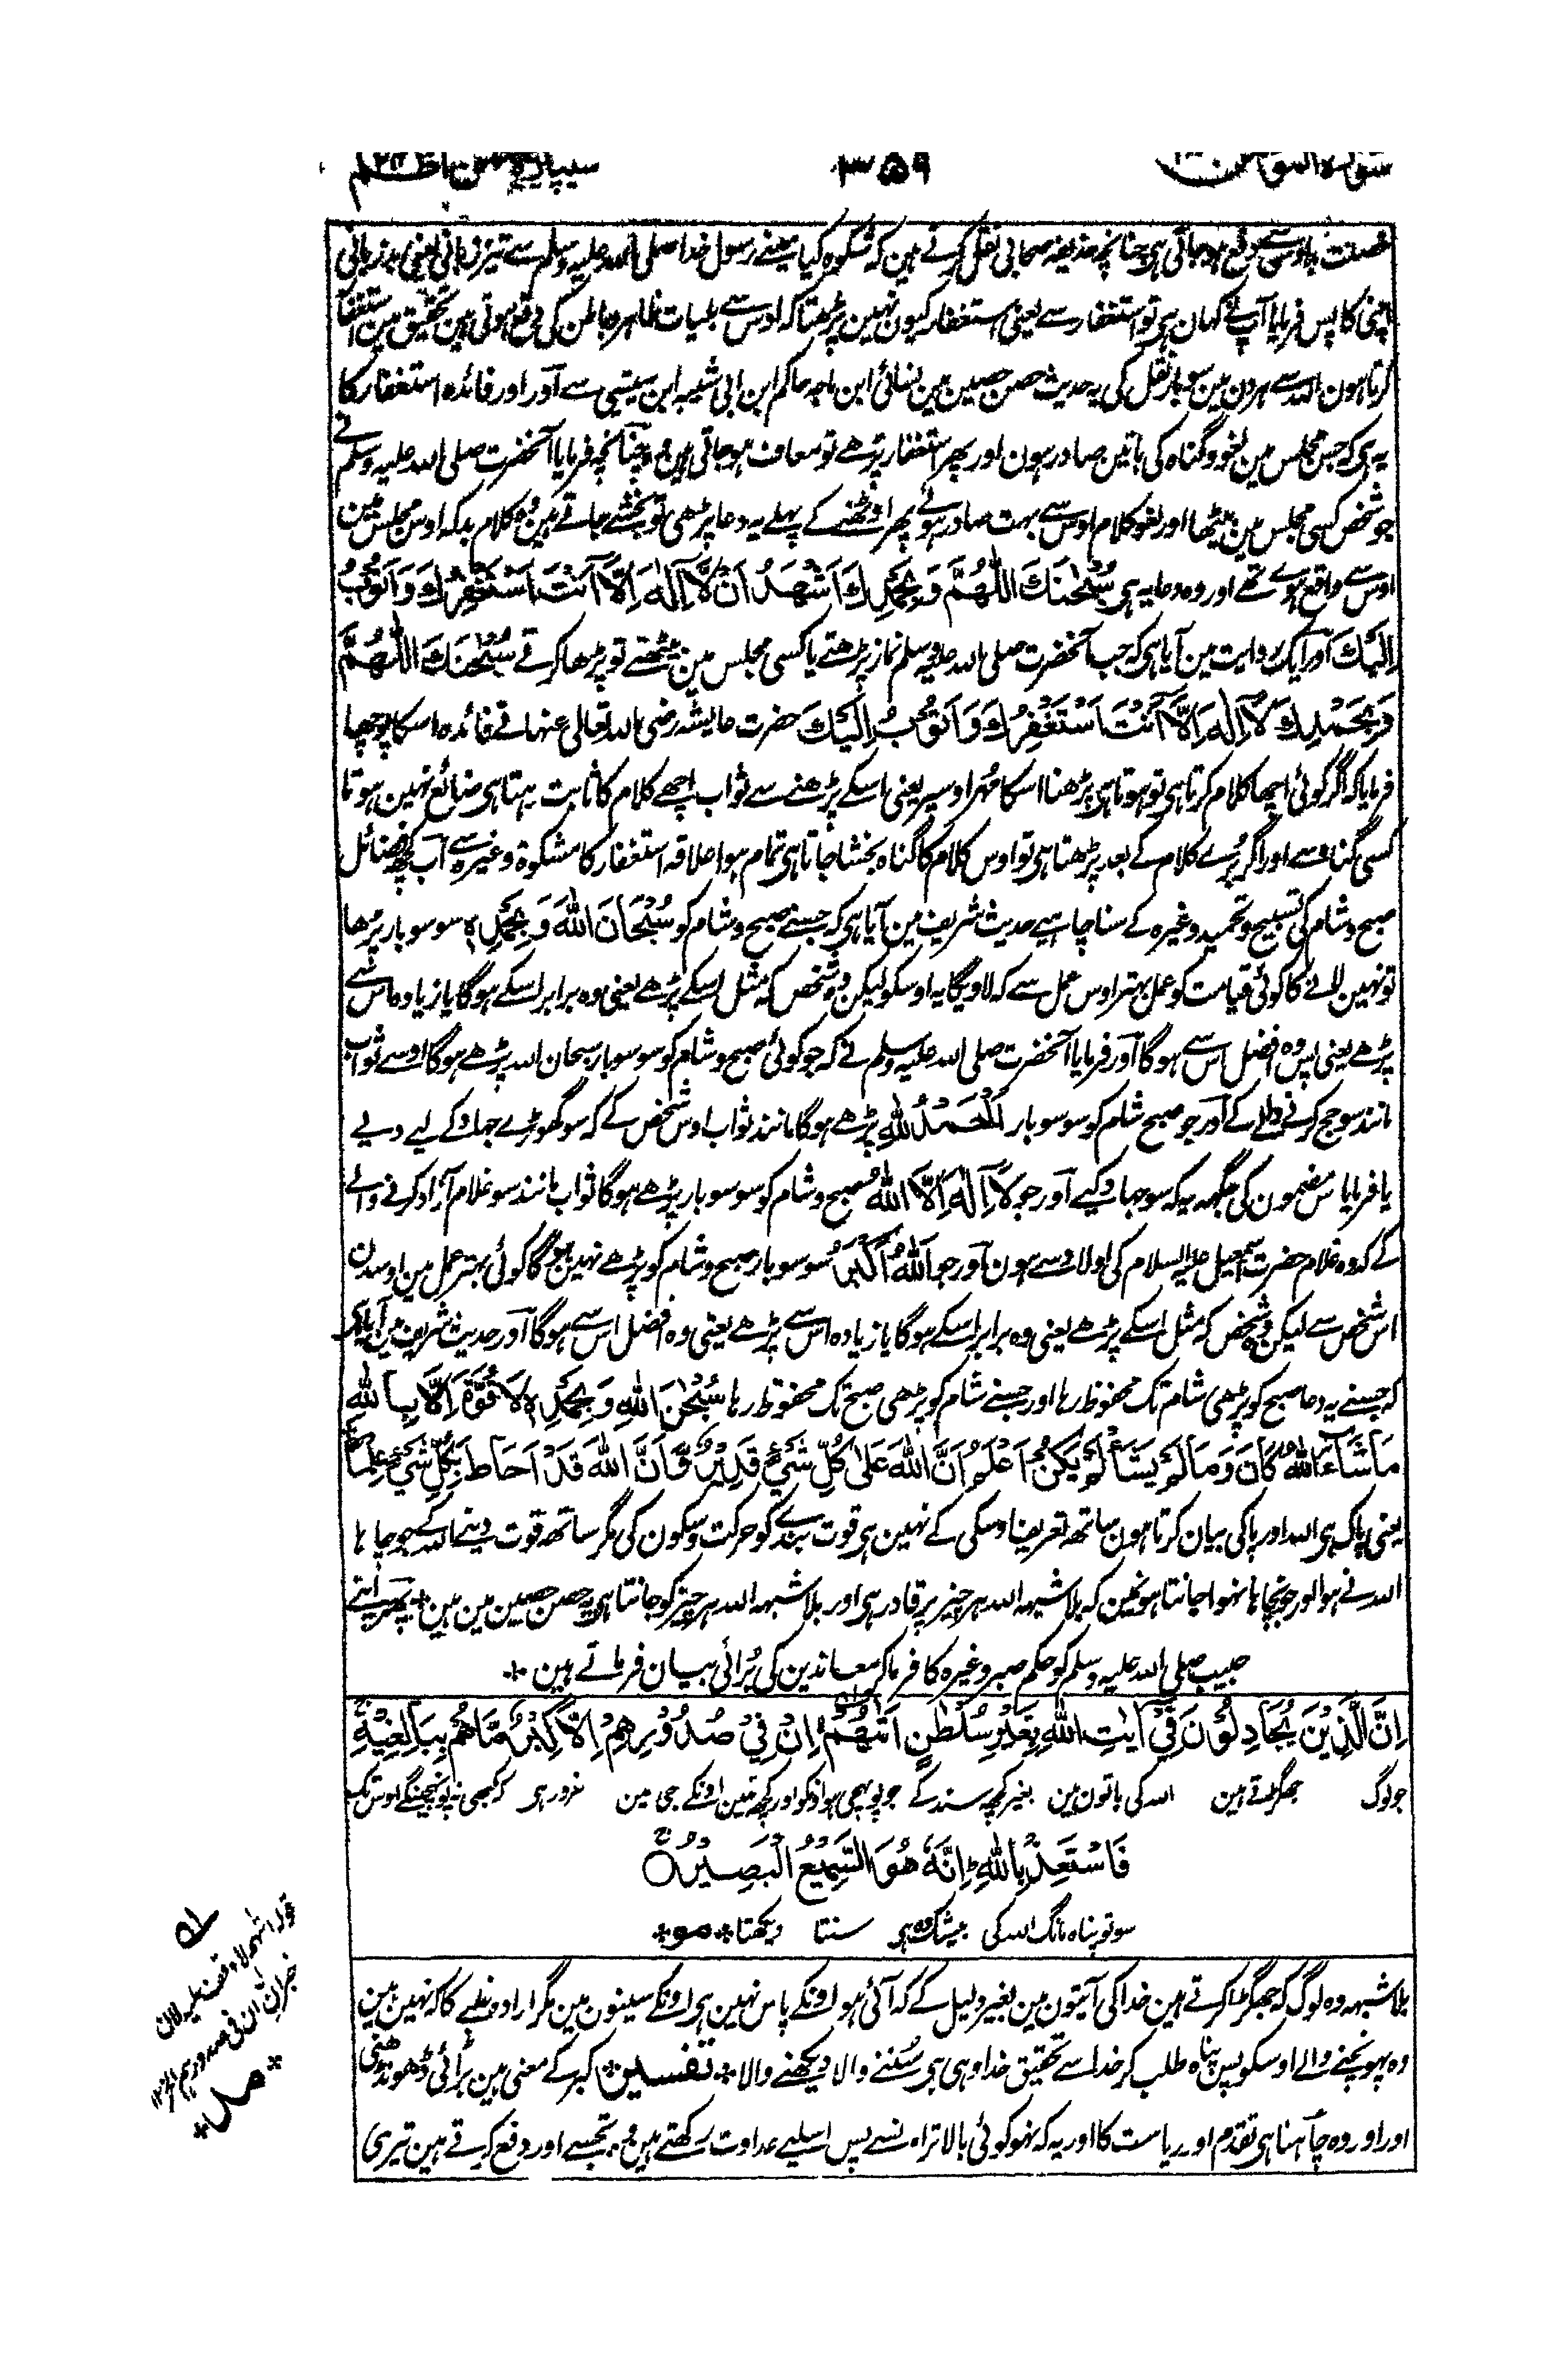 سورة المؤمن ٣٥٩ سیپارہ فمن اظلم
پاوس سے دفع ہو جاتی ہی چنانچہ حذیفہ صحابی نقل کرتے ہین کہ شکوہ کیا مینے رسول خدا صلی اللہ علیہ وسلم سے تیز زبانی یعنی بدزبانی
اپنی کا پس فرمایا آپ نے کہان ہی تو استغفار سے یعنی استغفار کیون نہین پڑھتا کہ اوس سے بلیات ظاہر و باطن کی دفع ہوتی ہین تحقیق مین استغفار
کرتا ہون اللہ سے ہر دن مین سو بار نقل کی یہ حدیث حصن حصین مین نسائی ابن ماجہ حاکم ابن ابی شیبہ ابن سنی سے اور اور فائدہ استغفار کا
یہ ہی کہ جس مجلس مین لغو و گناہ کی باتین صادر ہون اور پھر استغفار پڑھے تو معاف ہو جاتی ہین چنانچہ فرمایا آنحضرت صلی اللہ علیہ وسلم نے
جو شخص کسی مجلس مین بیٹھا اور لغو کلام اوس سے بہت صادر ہوئے پھر اوٹھنے کے پہلے یہ دعا پڑھی تو بخشے جاتے ہین وہ کلام بد کہ اوس مجلس مین
اوس سے واقع ہوے تھے اور وہ دعا یہ ہی سُبْحٰنَكَ اللّٰهُمَّ وَبِحَمْدِكَ اَشْهَدُ اَنْ لَّا اِلٰهَ اِلَّا اَنْتَ اَسْتَغْفِرُكَ وَاَتُوْبُ
اِلَيْكَ اور ایک روایت مین آیا ہی کہ جب آنحضرت صلی اللہ علیہ وسلم نماز پڑھتے یا کسی مجلس مین بیٹھتے تو پڑھا کرتے سُبْحٰنَكَ اللّٰهُمَّ
وَبِحَمْدِكَ لَا اِلٰهَ اِلَّا اَنْتَ اَسْتَغْفِرُكَ وَاَتُوْبُ اِلَيْكَ حضرت عایشہ رضی اللہ تعالی عنہا نے فائدہ اسکا پوچھا
فرمایا کہ اگر کوئی اچھا کلام کرتا ہی تو ہوتا ہی پڑھنا اسکا مُہر اوسپر یعنی اسکے پڑھنے سے ثواب اچھے کلام کا ثابت رہتا ہی ضائع نہین ہوتا
کسی گناہ سے اور اگر بُرے کلام کے بعد پڑھتا ہی تو اوس کلام کا گناہ بخشا جاتا ہی تمام ہوا علاقہ استغفار کا مشکوة وغیرہ سے اب کچھ فضائل
صبح و شام کی تسبیح و تحمید وغیرہ کے سنا چاہیے حدیث شریف مین آیا ہی کہ جسنے صبح و شام کو سُبْحَانَ اللّٰهِ وَبِحَمْدِهٖ سو سو بار پڑھا
تو نہین لانے کا کوئی قیامت کو عمل بہتر اوس عمل سے کہ لاویگا یہ اوسکو لیکن وہ شخص کہ مثل اسکے پڑھے یعنی وہ برابر اسکے ہوگا یا زیادہ اس سے
پڑھے یعنی پس وہ افضل اس سے ہوگا اور فرمایا آنحضرت صلی اللہ علیہ وسلم نے کہ جو کوئی صبح و شام کو سو سو بار سبحان اللہ پڑھے ہوگا اوسے ثواب
مانند سو حج کرنے والے کے اور جو صبح شام کو سو سو بار اَلْحَمْدُ لِلّٰهِ پڑھے ہوگا مانند ثواب اوس شخص کے کہ سو گھوڑے جہاد کے لیے دیے
یا فرمایا اس مضمون کی جگہہ یہ کہ سو جہاد کیے اور جو لَا اِلٰهَ اِلَّا اللّٰهُ صبح و شام کو سو سو بار پڑھے ہوگا ثواب مانند سو غلام آزاد کرنے والے
کے کہ وہ غلام حضرت اسمعیل علیہ السلام کی اولاد سے ہون اور جو اَللّٰهُ اَكْبَرُ سو سو بار صبح و شام کو پڑھے نہین ہوگا کوئی بہتر عمل مین اوسدن
اس شخص سے لیکن وہ شخص کہ مثل اسکے پڑھے یعنی وہ برابر اسکے ہوگا یا زیادہ اس سے پڑھے یعنی وہ افضل اس سے ہوگا اور حدیث شریف مین آیا ہی
کہ جسنے یہ دعا صبح کو پڑھی شام تک محفوظ رہا اور جسنے شام کو پڑھی صبح تک محفوظ رہا سُبْحٰنَ اللّٰهِ وَبِحَمْدِهٖ لَا قُوَّةَ اِلَّا بِاللّٰهِ
مَاشَآءَ اللّٰهُ كَانَ وَمَا لَمْ يَشَأْ لَمْ يَكُنْ اَعْلَمُ اَنَّ اللّٰهَ عَلٰى كُلِّ شَيْءٍ قَدِيْرٌ وَّاَنَّ اللّٰهَ قَدْ اَحَاطَ بِكُلِّ شَيْءٍ عِلْمًا
یعنی پاک ہی اللہ اور پاکی بیان کرتا ہون ساتھ تعریف اوسکی کے نہین ہی قوت بندے کو حرکت و سکون کی مگر ساتھ قوت دینے اللہ کے جو چاہا
اللہ نے ہوا اور جو نچاہا نہوا جانتا ہون مین کہ بلا شبہہ اللہ ہر چیز پر قادر ہی اور بلا شبہہ اللہ ہر چیز کو جانتا ہی یہ حصن حصین مین ہین ٭ پھر اپنے
حبیب صلی اللہ علیہ وسلم کو حکم صبر وغیرہ کا فرما کر معاندین کی بُرائی بیان فرماتے ہین ٭
اِنَّ الَّذِيْنَ يُجَادِلُوْنَ فِيْٓ اٰيٰتِ اللّٰهِ بِغَيْرِ سُلْطٰنٍ اَتٰىهُمْ اِنْ فِيْ صُدُوْرِهِمْ اِلَّا كِبْرٌ مَّا هُمْ بِبَالِغِيْهِ
جو لوگ جھگڑتے ہین اللہ کی باتون مین بغیر کچھ سند کے جو پہونچی ہو اونکو اور کچھ نہین اونکے جی مین غرور ہی کہ کبھی نہ پہونچینگے اوس تک
فَاسْتَعِذْ بِاللّٰهِ اِنَّهٗ هُوَ السَّمِيْعُ الْبَصِيْرُ
سو تو پناہ مانگ اللہ کی بیشک وہ ہی سنتا دیکھتا ٭ مو ٭
بلا شبہہ وہ لوگ کہ جھگڑا کرتے ہین خدا کی آیتون مین بغیر دلیل کے کہ آئی ہو اونکے پاس نہین ہی اونکے سینون مین مگر ارادہ غلبے کا کہ نہین ہین
وہ پہونچنے والے اوسکو پس پناہ طلب کر خدا سے تحقیق خدا وہی ہی سُننے والا دیکھنے والا ٭ تفسیر ٭ کبر کے معنی ہین بڑائی ڈھونڈھنی
اور اور وہ چاہنا ہی تقدم اور ریاست کا اور یہ کہ نہو کوئی بالاتر اونسے پس اسلیے عداوت رکھتے ہین تجھسے اور دفع کرتے ہین تیری